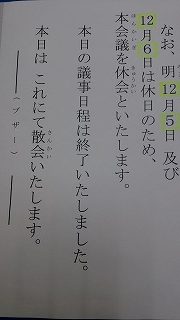 なお、明１２月５日 及び
１２月６日は休日のため、
本会議を休会といたします。
本日の議事日程は終了いたしました。
本日は これにて散会いたします。
（ブザー）